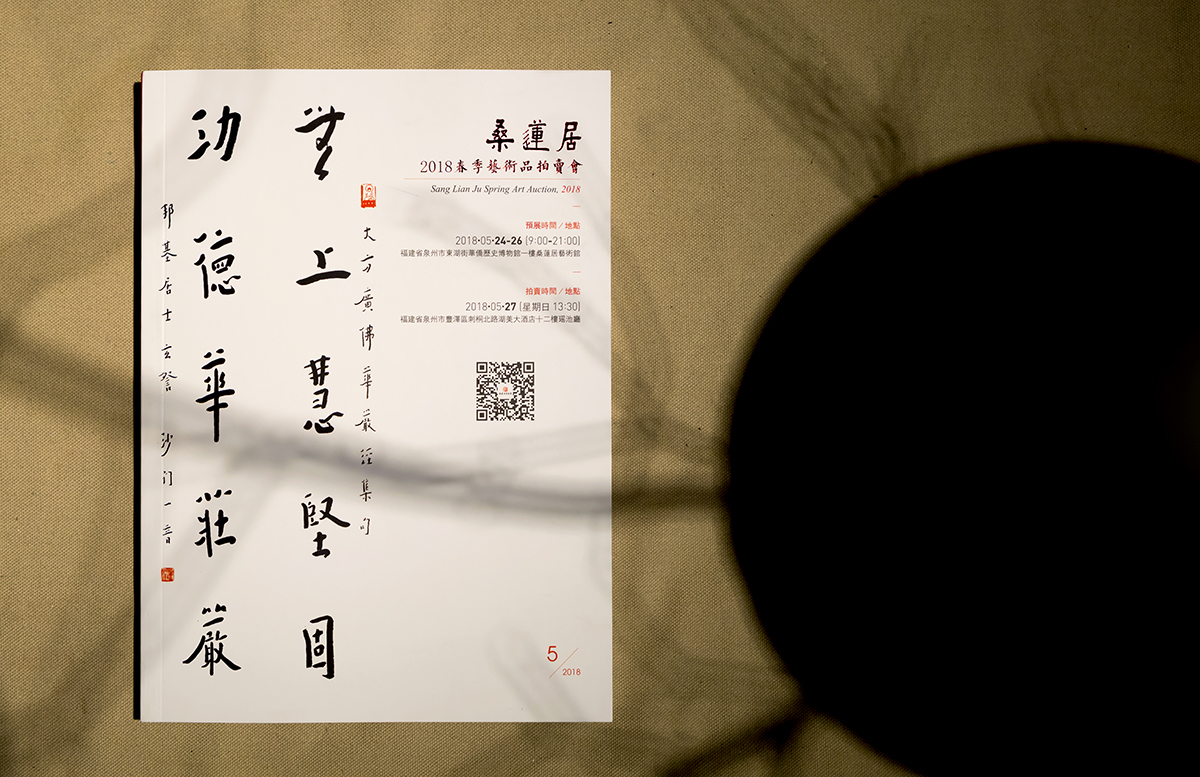 桑蓮居
2018春季藝術品拍賣會
Sang Lian Ju Spring Art Auction, 2018
預展時間／地點
2018·05·24-26 (9:00-21:00)
福建省泉州市東湖街華僑歷史博物館一樓桑蓮居藝術館
拍賣時間／地點
2018·05·27 (星期日 13:30)
福建省泉州市豐澤區刺桐北路湖美大酒店十二樓瑤池廳
5/2018
大方廣佛華嚴經集句
無上慧堅固
功德華莊嚴
邦基居士玄詧 沙门一音